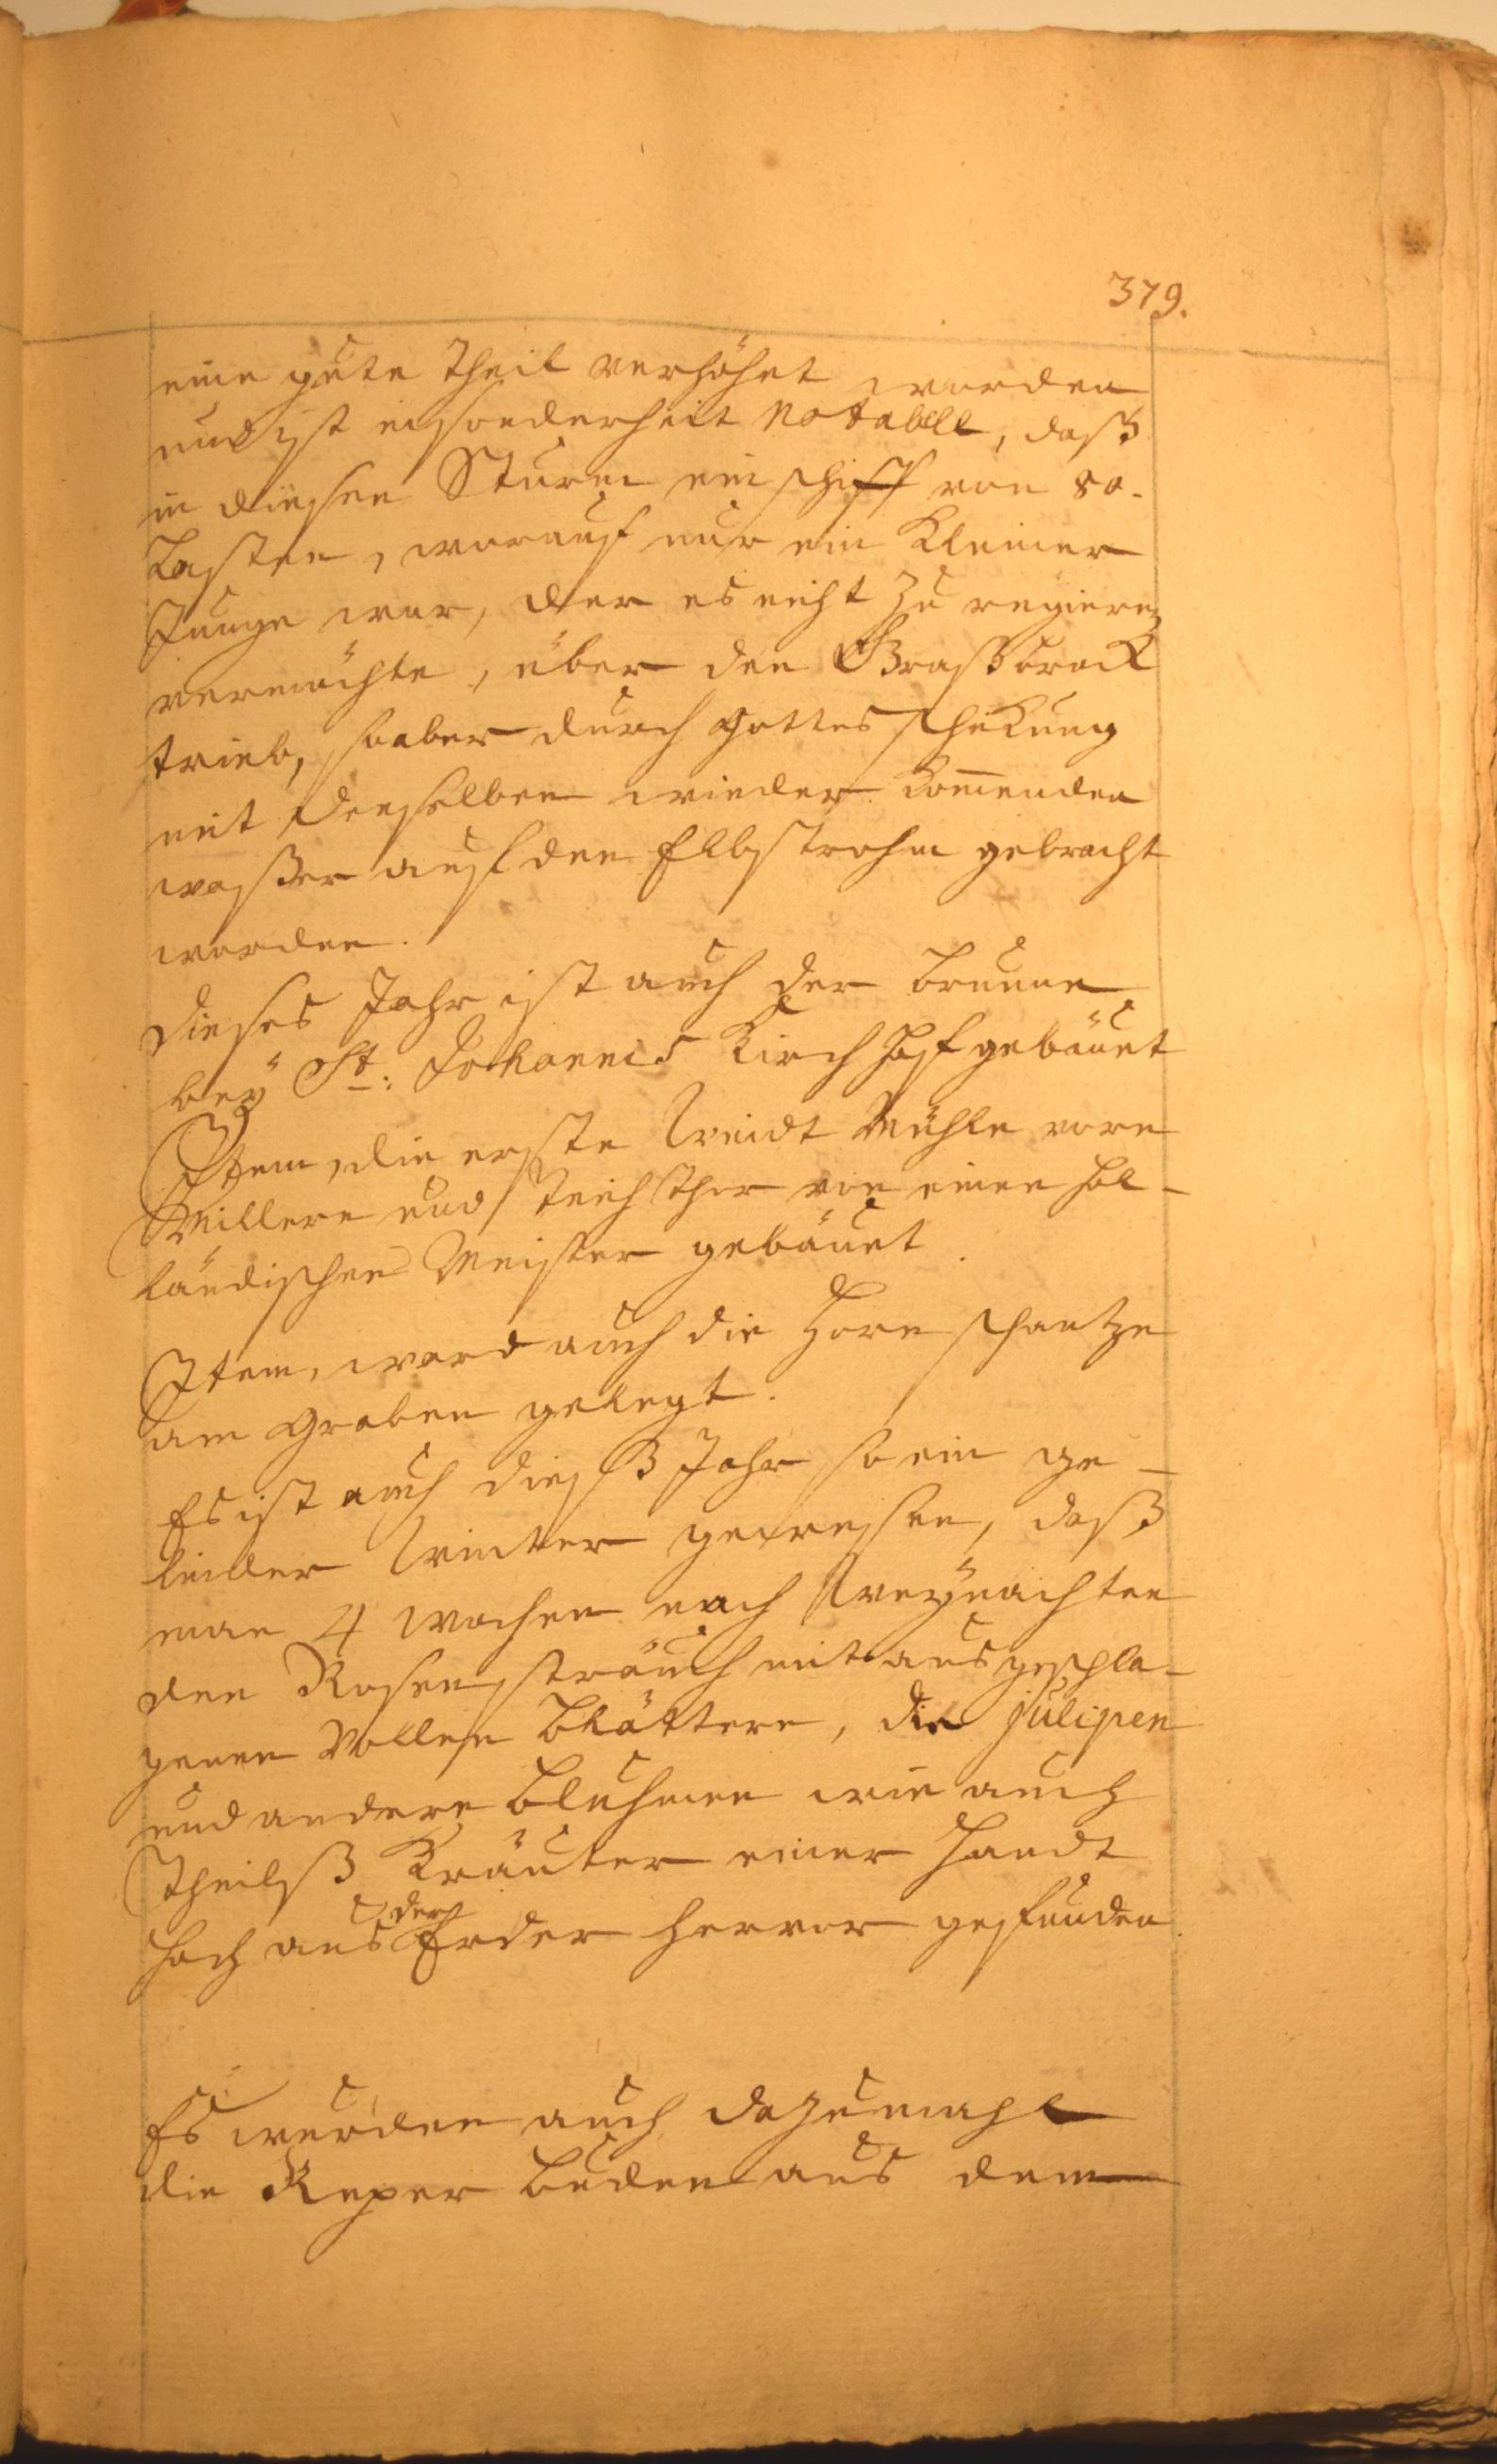 379.
eine gute Theil verhöhet worden
und ist insonderheit notabell, daß
in diesen Sturm ein schiff von 80.
Lasten, worauf nur ein Kleiner
Junge war, der es nicht zu regieren
vermochte, über den Graßbrock
trieb, so aber durch Gottes schickung
mit denselben wieder kom̅enden
waßer auf den Elbstrohm gebracht
worden.
Dieses Jahr ist auch der brunne
beÿ St: Johannis Kirchhoff gebäuet
Item, die erste Windt Mühle vorm
Millern und Teichthor von einen hol-
ländischen Meister gebäuet.
Item, ward auch die Hornschantze
am Graben gelegt.
Es ist auch dießß Jahr so ein ge-
linder Winter gewesen, daß
man 4 wochen nach Weÿnachten
den Rosenstrauch mit ausgeschla-
genen vollen blättern, die julipen
und andere bluhmen wie auch
Theilß Kräuter einer Handt
hoch aus der Erden hervor gefunden
Es wurden auch dazumahl
die Reper buden aus dem